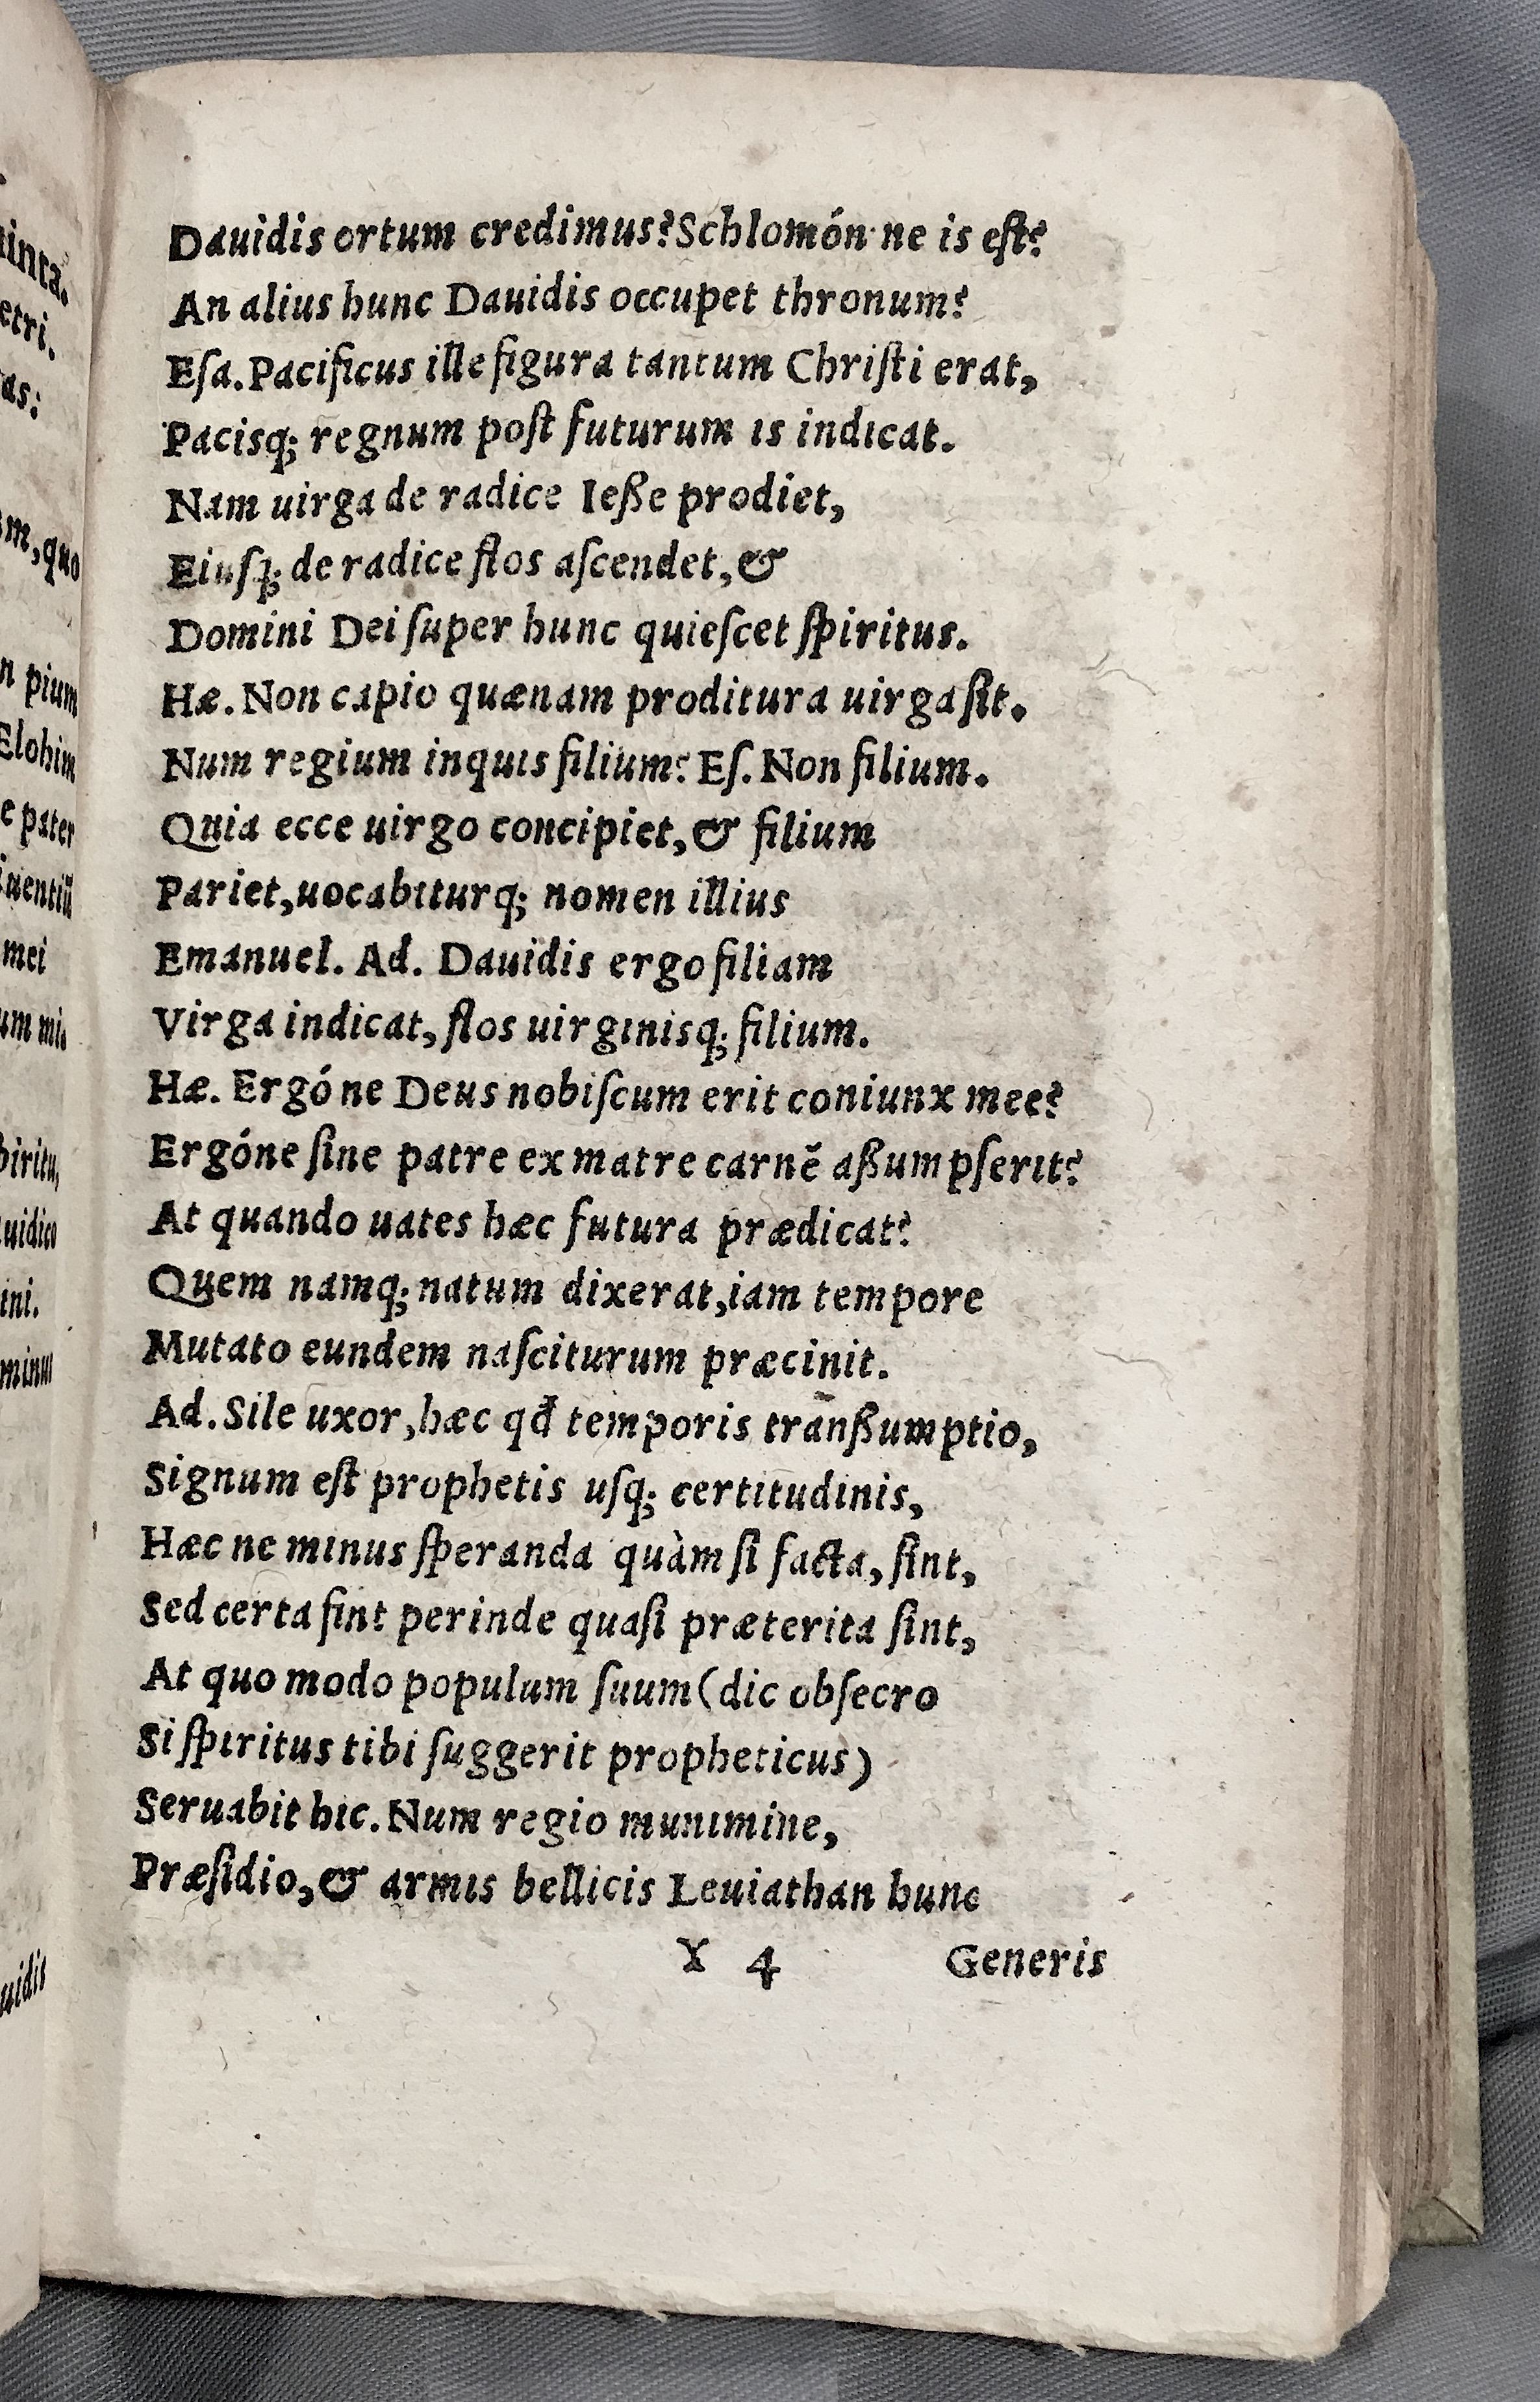 inta.
etri.
as:
m, quo
n pium
Elohim
e pater
mei
um mi
uidico
ini.
minus
uidis
Dauidis ortum credimus? Schlomón ne is eſt?
An alius hunc Dauidis occupet thronum?
Eſa. Pacificus ille figura tantum Chriſti erat,
Pacisq; regnum poſt futurum is indicat.
Nam uirga de radice Ieße prodiet,
Eiuſq; de radice flos aſcendet, &
Domini Dei ſuper hunc quieſcet ſpiritus.
Hæ. Non capio quænam proditura uirga ſit.
Num regium inquis filium? Eſ. Non filium.
Quia ecce uirgo concipiet, & filium
Pariet, uocabiturq; nomen illius
Emanuel. Ad. Dauidis ergo filiam
Virga indicat, flos uirginisq; filium.
Hæ. Ergóne Deus nobiſcum erit coniunx mee?
Ergóne ſine patre ex matre carnē aßumpſerit?
At quando uates hæc futura prædicat?
Quem namq; natum dixerat, iam tempore
Mutato eundem naſciturum præcinit.
Ad. Sile uxor, hæc qđ temporis tranßumptio,
Signum eſt prophetis uſq; certitudinis,
Hæc ne minus ſperanda quàm ſi facta, ſint,
Sed certa ſint perinde quaſi præterita ſint,
At quo modo populum ſuum (dic obſecro
Si ſpiritus tibi ſuggerit propheticus)
Seruabit hic. Num regio munimine,
Præſidio, & armis bellicis Leuiathan hunc
Y 4 Generis